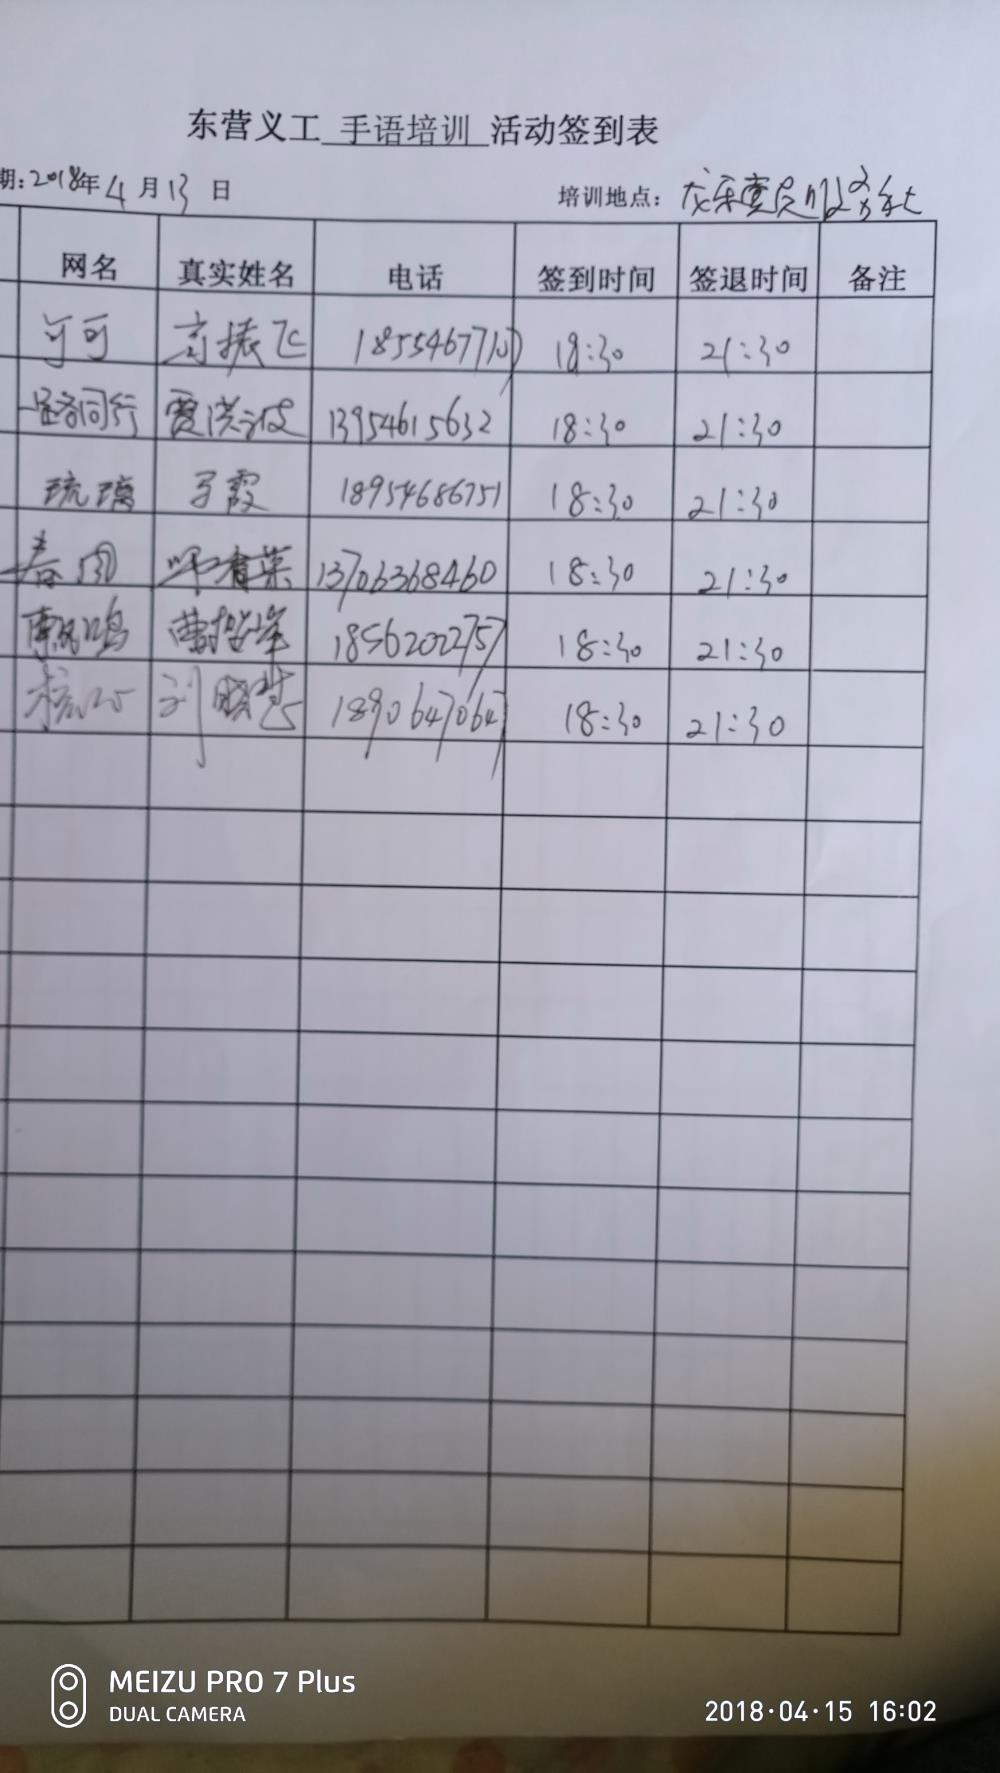 东营义工 手语培训 活动签到表
期:2018年4月13日 培训地点:
网名 真实姓名 电话 签到时间 签退时间 备注
可可 高振飞 18:30 21:30
路同行 13954615632 18:30 21:30
琉璃 于霞 18954686751 18:30 21:30
春雨 13706368460 18:30 21:30
18562022757 18:30 21:30
刘 18906470647 18:30 21:30
MEIZU PRO 7 Plus
DUAL CAMERA
2018·04·15 16:02